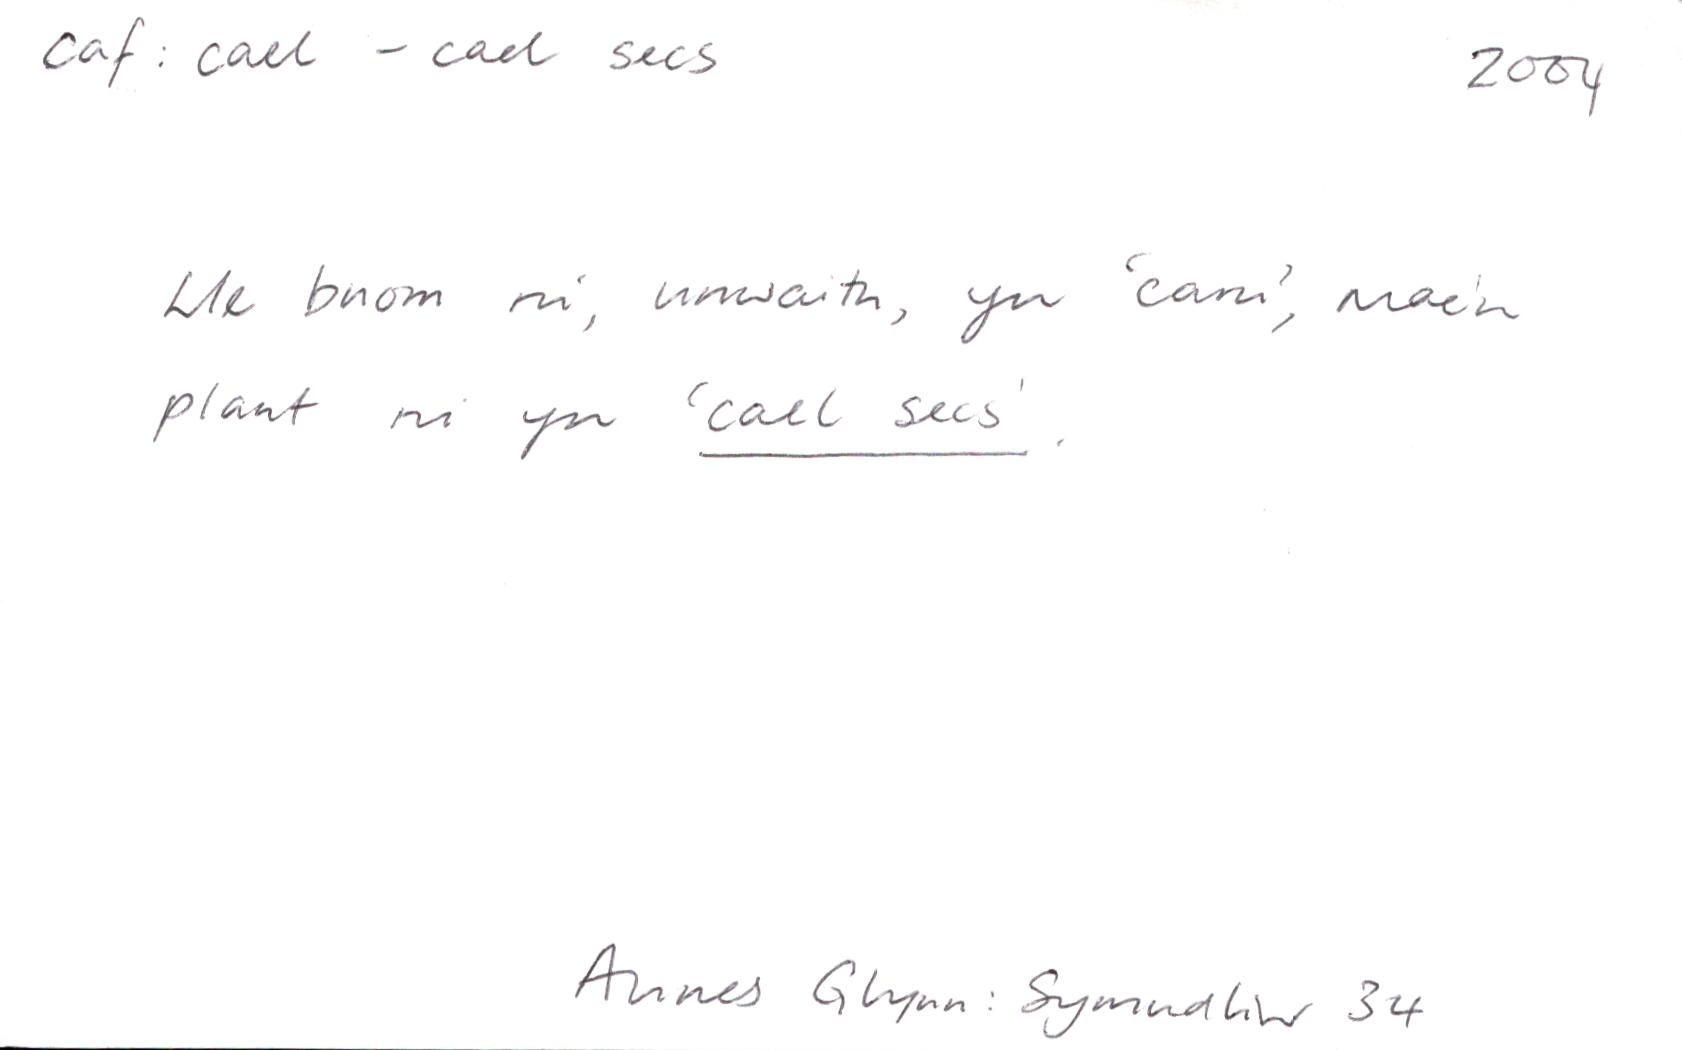 caf: cael - cael secs
2004
Lle buom ni, unwaith, yn 'caru', mae'n
plant ni yn 'cael secs'.
Annes Glynn: Symudliw 34